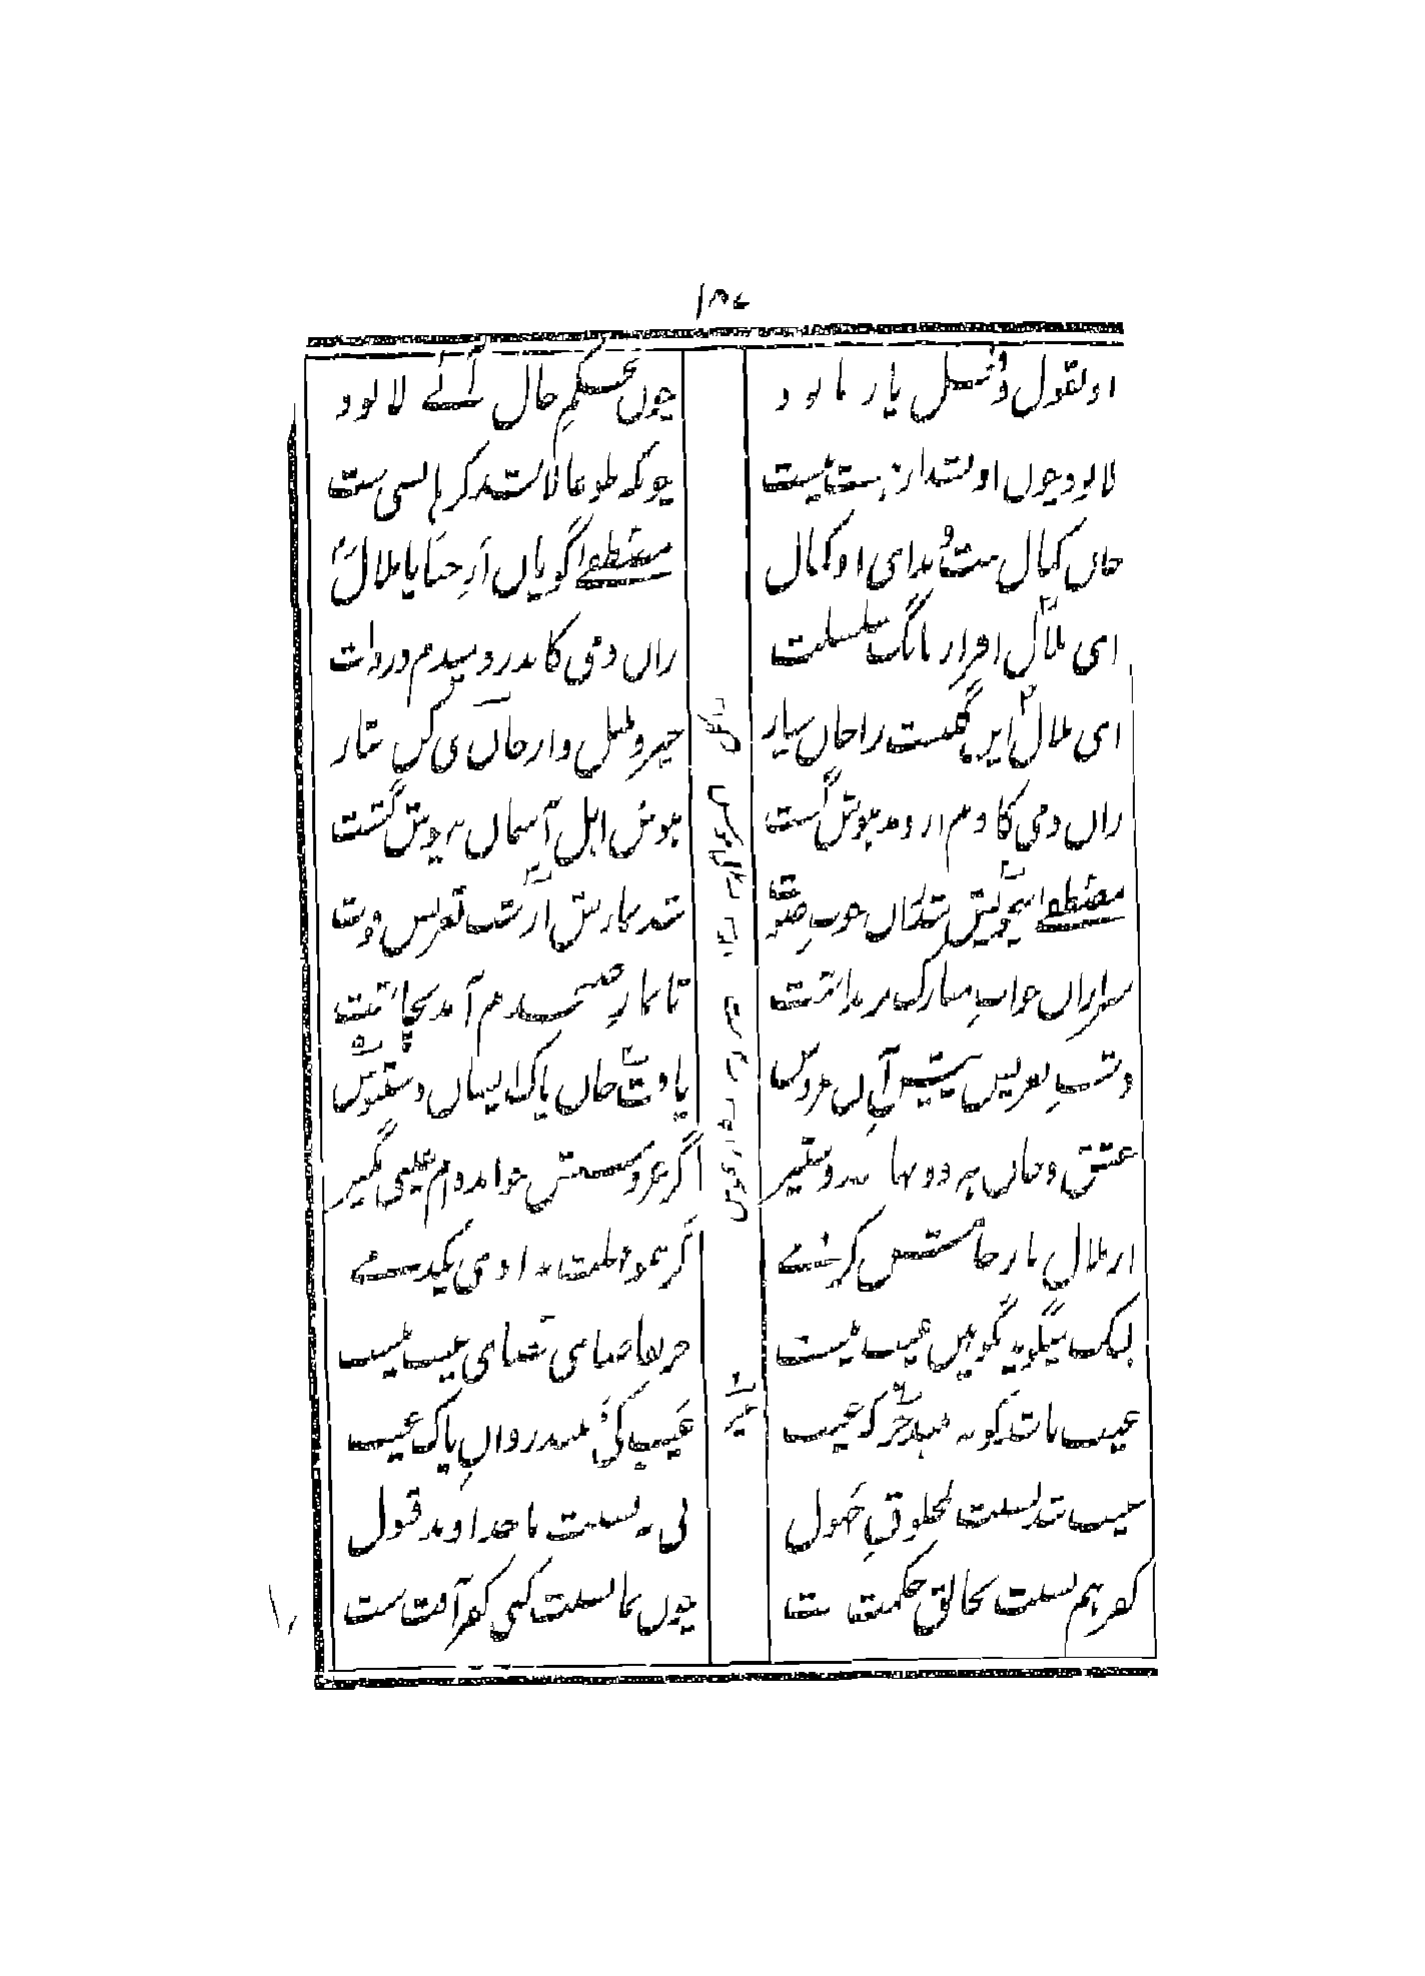 او بقول و فعل یار ما بود چوں بحکم حال آئے لا بود
لا بود چوں او نشد از هست نیست چونکه طوعا لا نشد کرها بسی ست
جاں کمال ست و ندای او کمال مصطفےٰ گویاں ارحنا یا بلال
ای بلال افراز بانگ سلسلت زاں دمی کاندر دمیدم در دلت
ای بلال ایں گلبنت را جاں سپار خیز و بلبل وار جاں می کن نثار
زاں دمی کادم ازو مدهوش گشت هوش اهل آسماں بیهوش گشت
مصطفےٰ بیخویش شد زاں خوب صوت شد نمازش از شب تعریس فوت
سر ازاں خواب مبارک بر نداشت تا نماز صبحدم آمد بچاشت
در شب تعریس پیش آں عروس یافت جان پاک ایشاں دستبوس
عشق و جاں هر دو نهانند و ستیر گر عروسش خوانده ام عیبی مگیر
از ملال یار خامش کردمے گر همو مهلت بدادی یکدمے
لیک میگوید بگو هیں عیب نیست جز تقاضای قضای غیب نیست
عیب باشد کو نه بیند جز که عیب عیب کی بیند روان پاک غیب
عیب شد نسبت بمخلوق جهول نی به نسبت با خداوند قبول
کفر هم نسبت بخالق حکمت ست چوں بما نسبت کنی کفر آفت ست